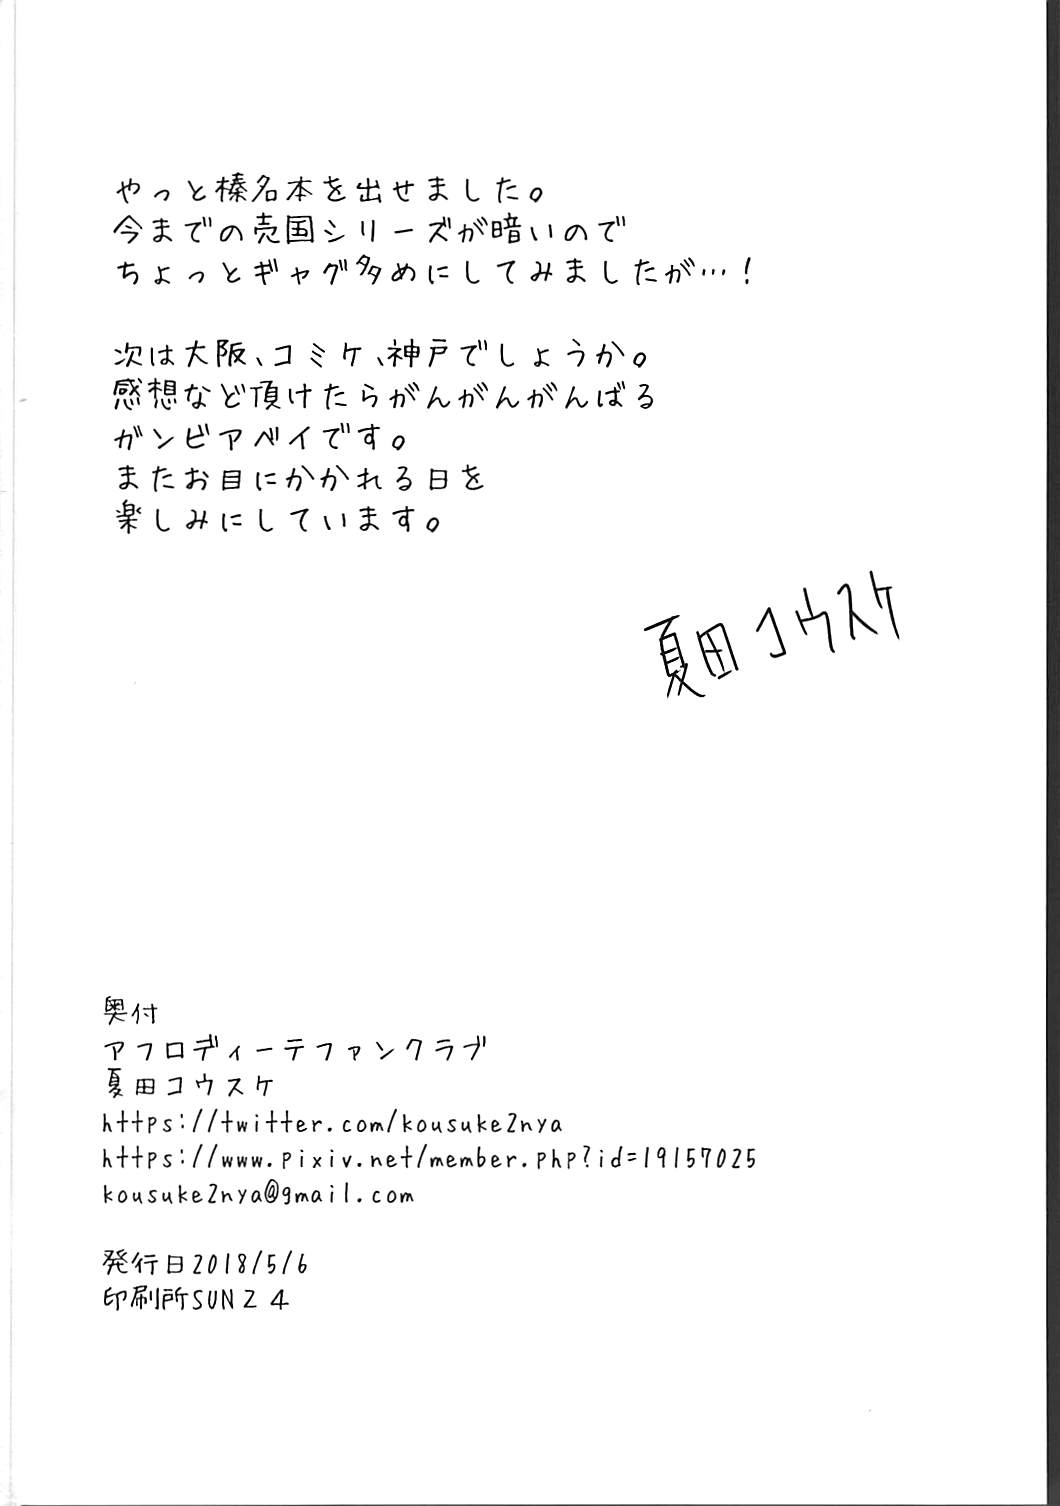 やっと榛名本を出せました。
今までの売国シリーズが暗いので
ちょっとギャグ多めにしてみましたが…！
次は大阪、コミケ、神戸でしょうか。
感想など頂けたらがんがんがんばる
ガンビアベイです。
またお目にかかれる日を
楽しみにしています。
夏田コウスケ
奥付
アフロディーテファンクラブ
夏田コウスケ
https://twitter.com/kousuke2nya
https://www.pixiv.net/member.php?id=19157025
kousuke2nya@gmail.com
発行日2018/5/6
印刷所SUN２４